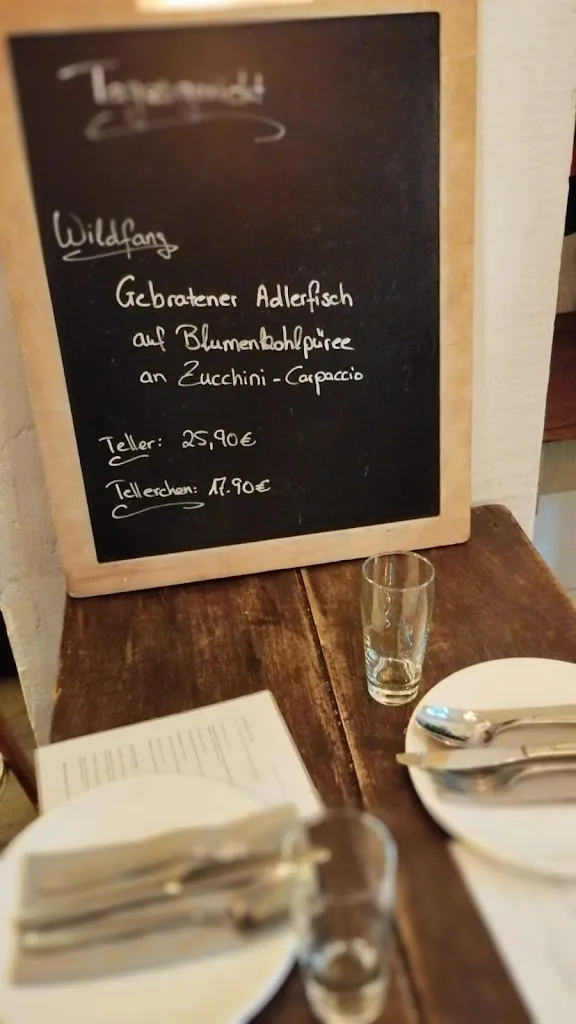 Tagesgericht
Wildfang
Gebratener Adlerfisch
auf Blumenkohlpüree
an Zucchini-Carpaccio
Teller: 25,90€
Tellerchen: 17.90€